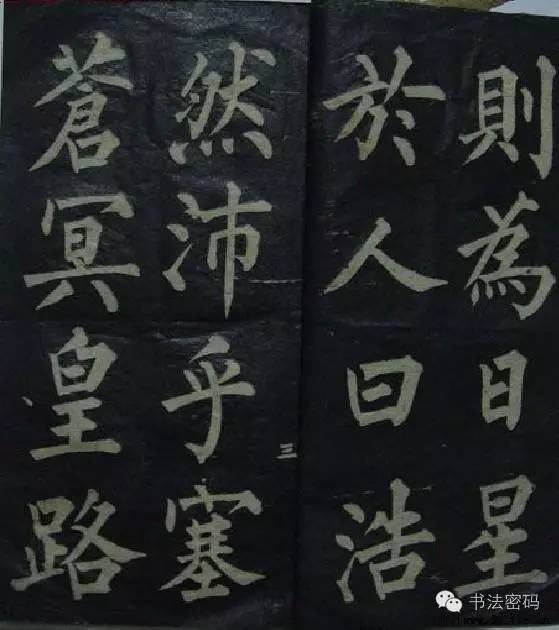 則為日星
於人曰浩
然沛乎塞
蒼冥皇路
三
书法密码